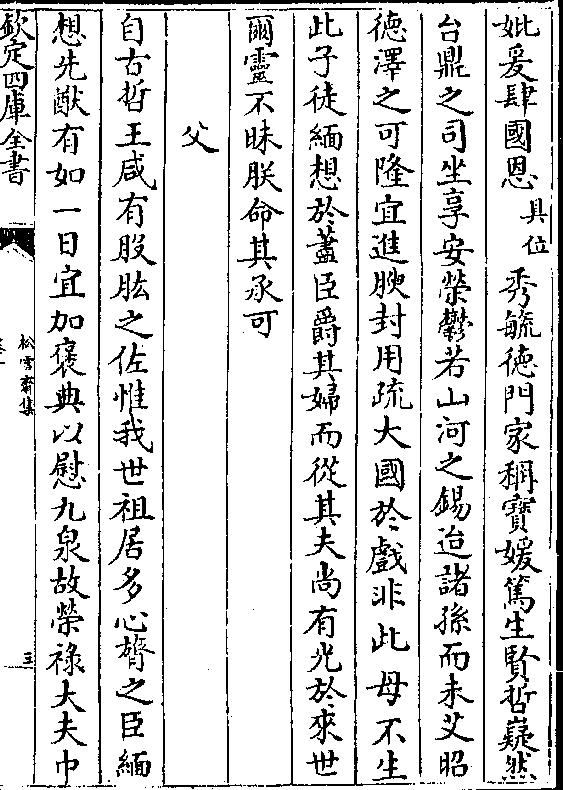 妣爰肆國恩具位 秀毓德門家稱寶媛篤生賢哲嶷然
台鼎之司坐享安榮鬱若山河之錫迨諸孫而未艾昭
德澤之可隆宜進腴封用疏大國於戲非此母不生
此子徒緬想於藎臣爵其婦而從其夫尚有光於來世
爾靈不昧朕命其承可
父
自古哲王咸有股肱之佐惟我世祖居多心膂之臣緬
想先猷有如一日宜加褒典以慰九泉故榮祿大夫中
欽定四庫全書
松雪齋集
三